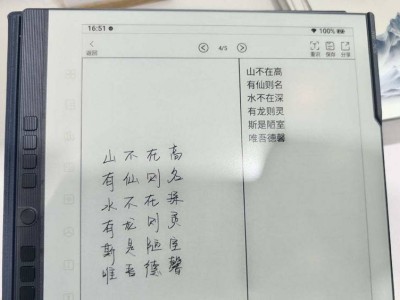 16:51
100%
返回
4/5
重识
保存
分享
山不在高
有仙则名
水不在深
有龙则灵
斯是陋室
唯吾德馨
山不在高
有仙则名
水不在深
有龙则灵
斯是陋室
唯吾德馨